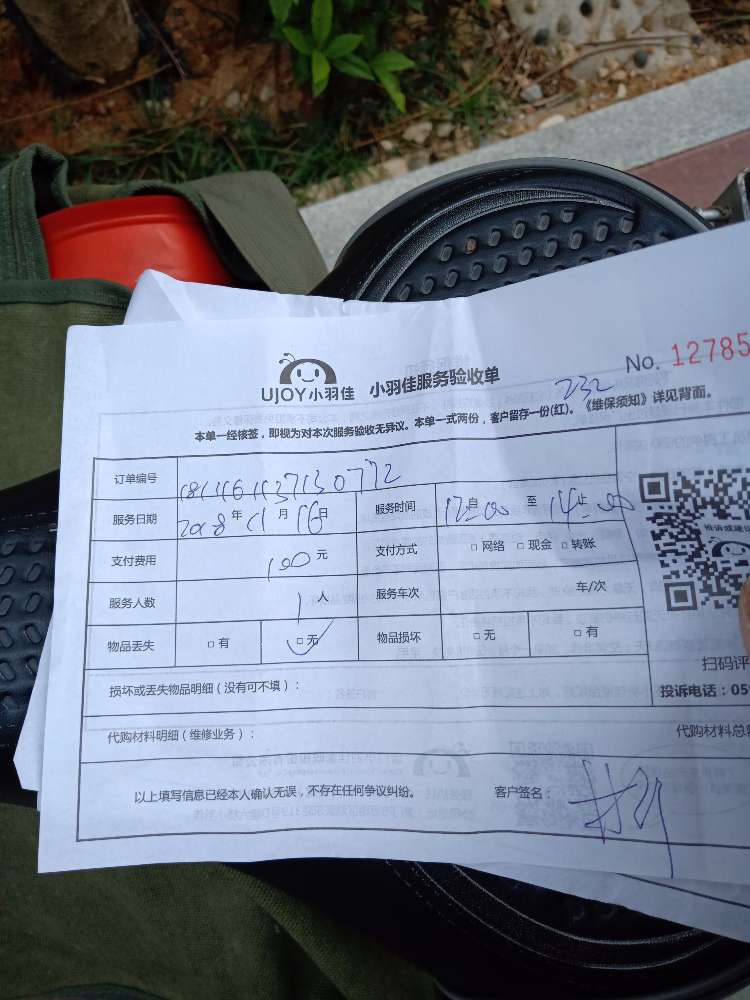 No. 12785
UJOY小羽佳 小羽佳服务验收单
232
本单一经核签，即视为对本次服务验收无异议。本单一式两份，客户留存一份(红)。《维保须知》详见背面。
订单编号
服务日期 2018年11月16日 服务时间 12:00自 至 14:00止
支付费用 100元 支付方式 □网络 □现金 □转账
服务人数 1人 服务车次 车/次
物品丢失 □有 □无 物品损坏 □无 □有
扫码评
损坏或丢失物品明细（没有可不填）： 投诉电话：059
代购材料明细（维修业务）： 代购材料总
以上填写信息已经本人确认无误，不存在任何争议纠纷。 客户签名：